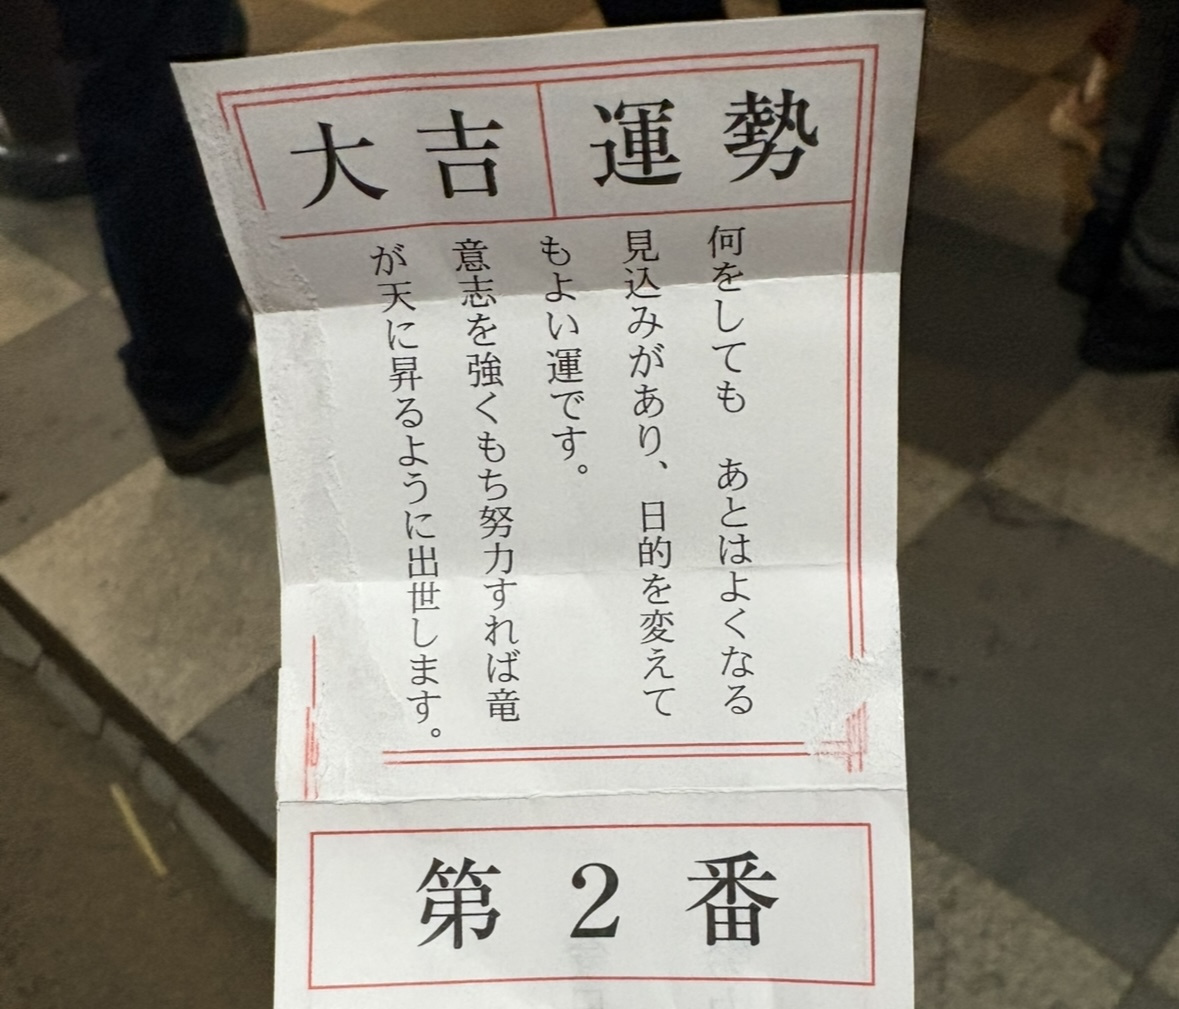 大吉 運勢
何をしても　あとはよくなる
見込みがあり、日的を変えて
もよい運です。
意志を強くもち努力すれば竜
が天に昇るように出世します。
第2番